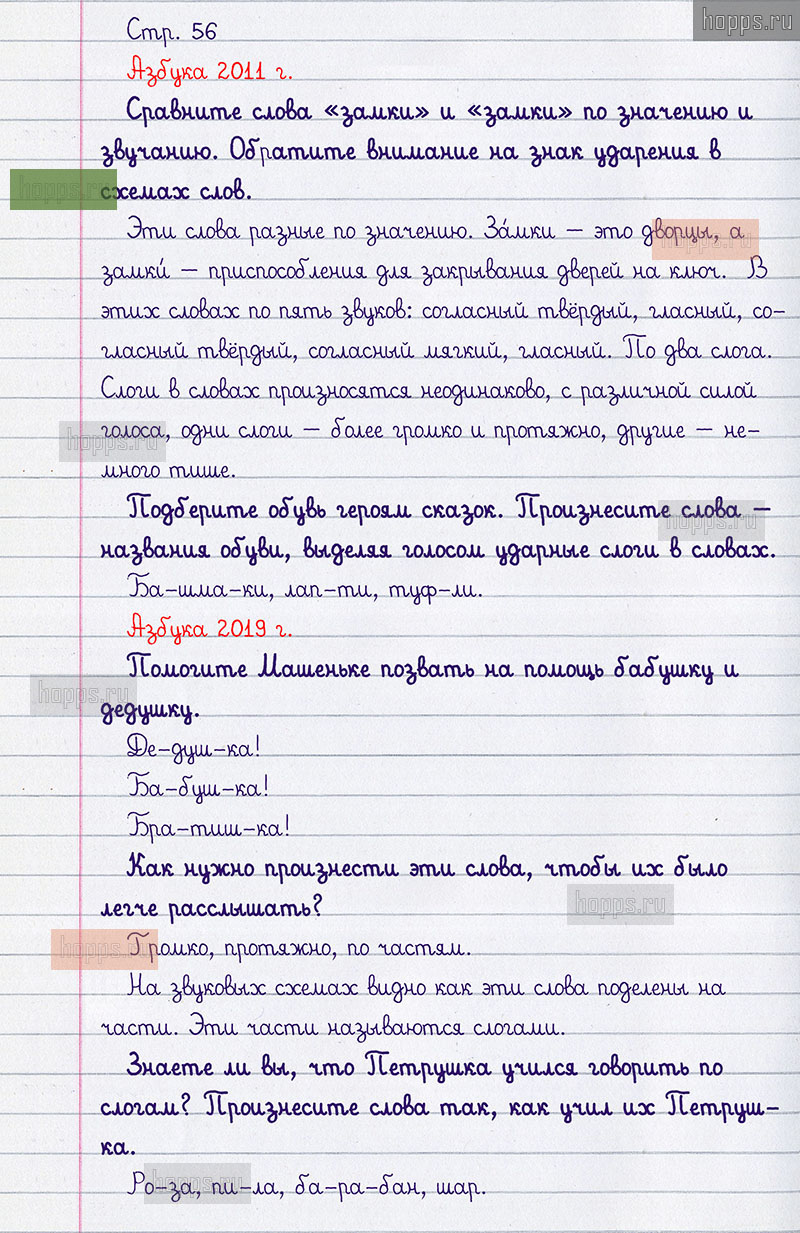 hopps.ru
Стр. 56
Азбука 2011 г.
Сравните слова «замки» и «замки» по значению и
звучанию. Обратите внимание на знак ударения в
hopps.ru
схемах слов.
Эти слова разные по значению. За́мки – это дворцы, а
hopps.ru
замки́ – приспособления для закрывания дверей на ключ. В
этих словах по пять звуков: согласный твёрдый, гласный, со-
гласный твёрдый, согласный мягкий, гласный. По два слога.
Слоги в словах произносятся неодинаково, с различной силой
голоса, одни слоги – более громко и протяжно, другие – не-
hopps.ru
много тише.
Подберите обувь героям сказок. Произнесите слова –
hopps.ru
названия обуви, выделяя голосом ударные слоги в словах.
Ба-шма-ки, лап-ти, туф-ли.
Азбука 2019 г.
Помогите Машеньке позвать на помощь бабушку и
hopps.ru
дедушку.
Де-душ-ка!
Ба-буш-ка!
Бра-тиш-ка!
Как нужно произнести эти слова, чтобы их было
легче расслышать?
hopps.ru
Громко, протяжно, по частям.
hopps.ru
На звуковых схемах видно как эти слова поделены на
части. Эти части называются слогами.
Знаете ли вы, что Петрушка учился говорить по
слогам? Произнесите слова так, как учил их Петруш-
ка.
Ро-за, пи-ла, ба-ра-бан, шар.
hopps.ru